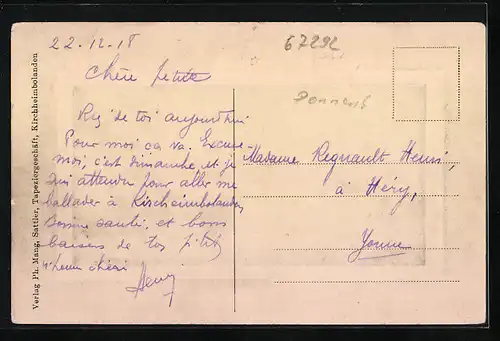 Verlag Ph. Mang, Sattler, Tapeziergeschäft, Kirchheimbolanden
22-12-18
Chère petite
Rien de toi aujourd'hui
Pour moi ca va. Excuse
moi, c'est dimanche, et je
suis attendu pour aller me
ballader à Kircheimbolanden
Bonne santé, et bons
baisers de ton p'tit
Henri chéri
Henri
67292
Madame Regnault Henri,
à Héry,
Yonne